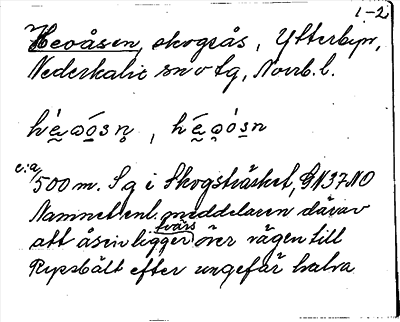 1-2
Heoåsen, skogsås, Ytterbyn,
Nederkalix sn o tg, Norrb. l.
c:a 500 m. S g i Skogsträsket, GN37NO
Namnet enl. meddelaren därav
att åsen ligger tvärs över vägen till
Rypsbält efter ungefär halva